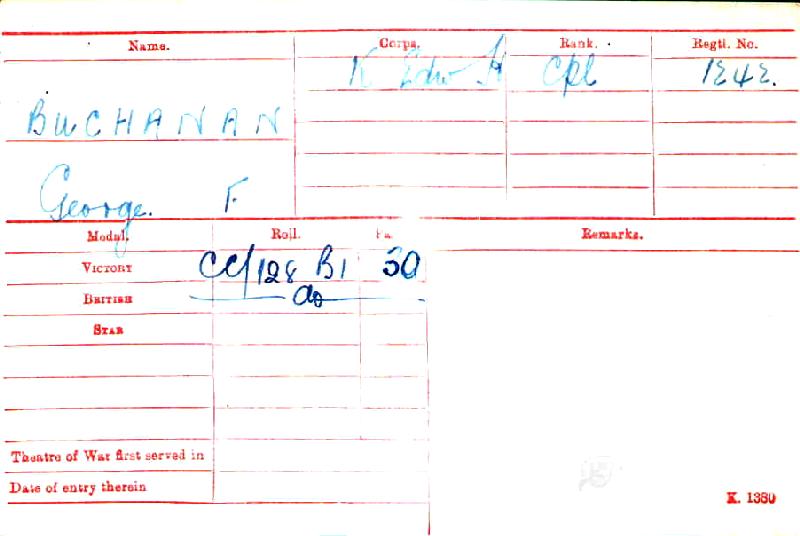 Name. Corps. Rank. Regtl. No.
K Edw H Cpl 1242.
BUCHANAN
George. F.
Medal. Roll. Pa Remarks.
VICTORY CC/128 B1 30
BRITISH do
STAR
Theatre of War first served in
Date of entry therein
K. 1380